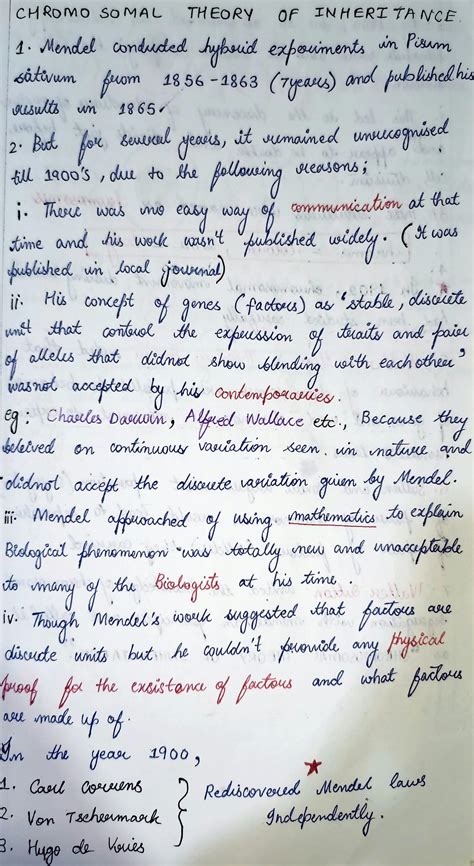 CHROMO SOMAL THEORY OF INHERITANCE.
1. Mendel conducted hybrid experiments in Pisum
sativum from 1856-1863 (7years) and published his
results in 1865.
2. But for several years, it remained unrecognised
till 1900's, due to the following reasons;
i. There was no easy way of communication at that
time and his work wasn't published widely. (It was
published in local journal)
ii. His concept of genes (factors) as 'stable, discrete
unit that control the expression of traits and pair
of alleles that didnot show blending with each other'
was not accepted by his contemporaries.
eg: Charles Darwin, Alfred Wallace etc., Because they
beleived on continuous variation seen in nature and
didnot accept the discrete variation given by Mendel.
iii. Mendel approached of using mathematics to explain
Biological phenomenon was totally new and unacceptable
to many of the Biologists at his time.
iv. Though Mendel's work suggested that factors are
discrete units but he couldn't provide any physical
proof for the exsistence of factors and what factors
are made up of.
In the year 1900,
1. Carl Correns
2. Von Tschermark
3. Hugo de Vries
Rediscovered Mendel laws
Independently.